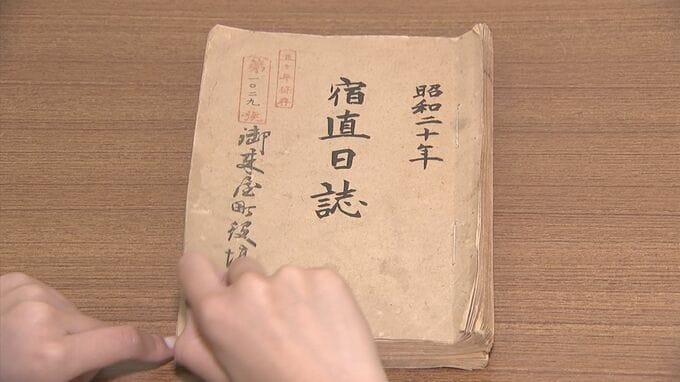 昭和二十年
宿直日誌
五ヶ年保存
第一〇二九号
御来屋町役場